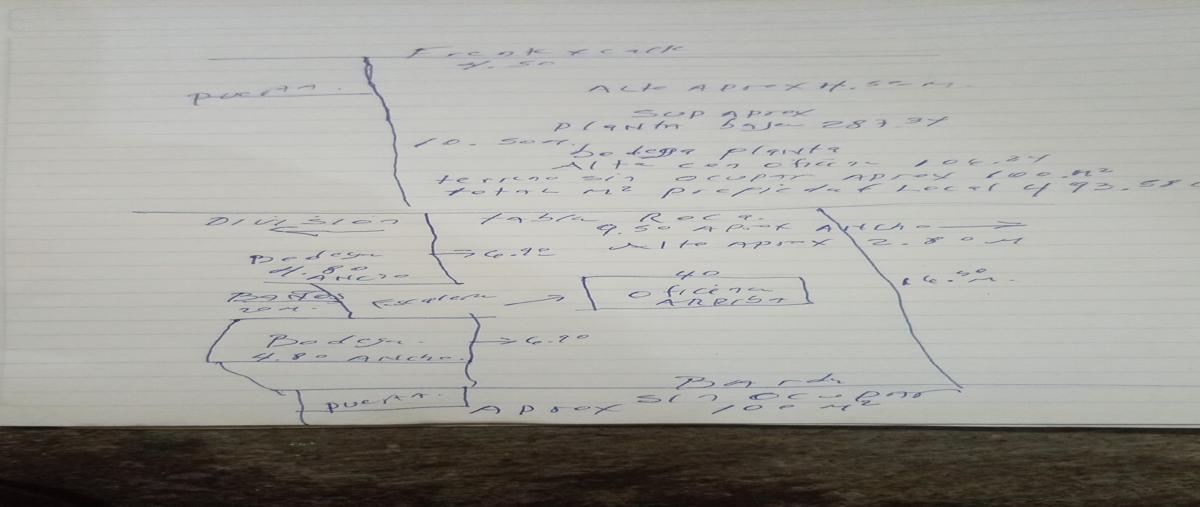 Frente x calle
puerta.
Alto Aprox 4.50 m.
Sup Aprox
planta baja 287.34
10.50 m.
bodega planta
Alta con oficina 104.24
terreno sin ocupar Aprox 100 M²
total m² Local 493.58
División tabla Roca.
9.50 Aprox Ancho
Alto Aprox 2.80 M
Bodega 6.90
4.80
Ancho
40
Baños Escalera Oficina
20 M. ARRIBA
Bodega 6.90
4.80 Ancho.
Barda
puerta. Sin Ocupar
Aprox 100 M²